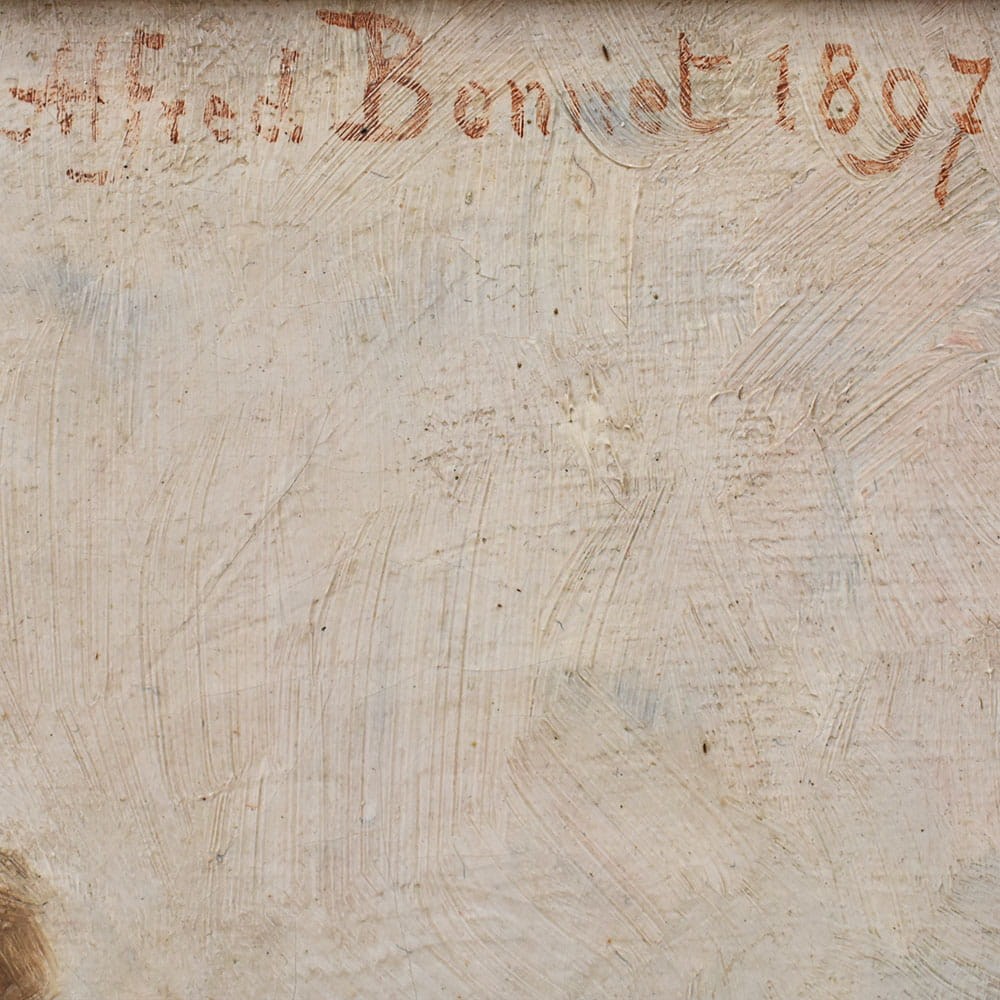 Alfred Bonnet 1897